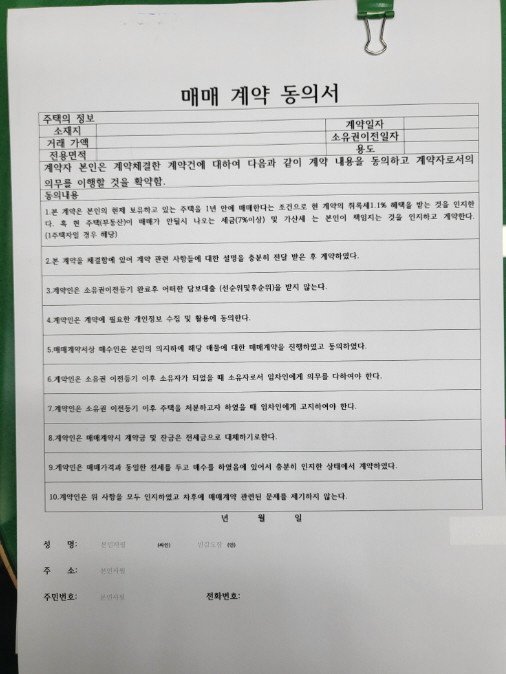 매매 계약 동의서
주택의 정보 계약일자
소재지 소유권이전일자
거래 가액 용도
전용면적
계약자 본인은 계약체결한 계약건에 대하여 다음과 같이 계약 내용을 동의하고 계약자로서의
의무를 이행할 것을 확약함.
동의내용
1.본 계약은 본인의 현재 보유하고 있는 주택을 1년 안에 매매한다는 조건으로 현 계약의 취록세1.1% 혜택을 받는 것을 인지한
다. 혹 현 주택(부동산)이 매매가 안될시 나오는 세금(7%이상) 및 가산세 는 본인이 책임지는 것을 인지하고 계약한다.
(1주택자일 경우 해당)
2.본 계약을 체결함에 있어 계약 관련 사항들에 대한 설명을 충분히 전달 받은 후 계약하였다.
3.계약인은 소유권이전등기 완료후 어떠한 담보대출 (선순위및후순위)을 받지 않는다.
4.계약인은 계약에 필요한 개인정보 수집 및 활용에 동의한다.
5.매매계약서상 매수인은 본인의 의지하에 해당 매물에 대한 매매계약을 진행하였고 동의하였다.
6.계약인은 소유권 이전등기 이후 소유자가 되었을 때 소유자로서 임차인에게 의무를 다하여야 한다.
7.계약인은 소유권 이전등기 이후 주택을 처분하고자 하였을 때 임차인에게 고지하여야 한다.
8.계약인은 매매계약시 계약금 및 잔금은 전세금으로 대체하기로한다.
9.계약인은 매매가격과 동일한 전세를 두고 매수를 하였음에 있어서 충분히 인지한 상태에서 계약하였다.
10.계약인은 위 사항을 모두 인지하였고 차후에 매매계약 관련된 문제를 제기하지 않는다.
년 월 일
성 명: 본인자필 (싸인) 인감도장 (인)
주 소: 본인자필
주민번호: 본인자필 전화번호: